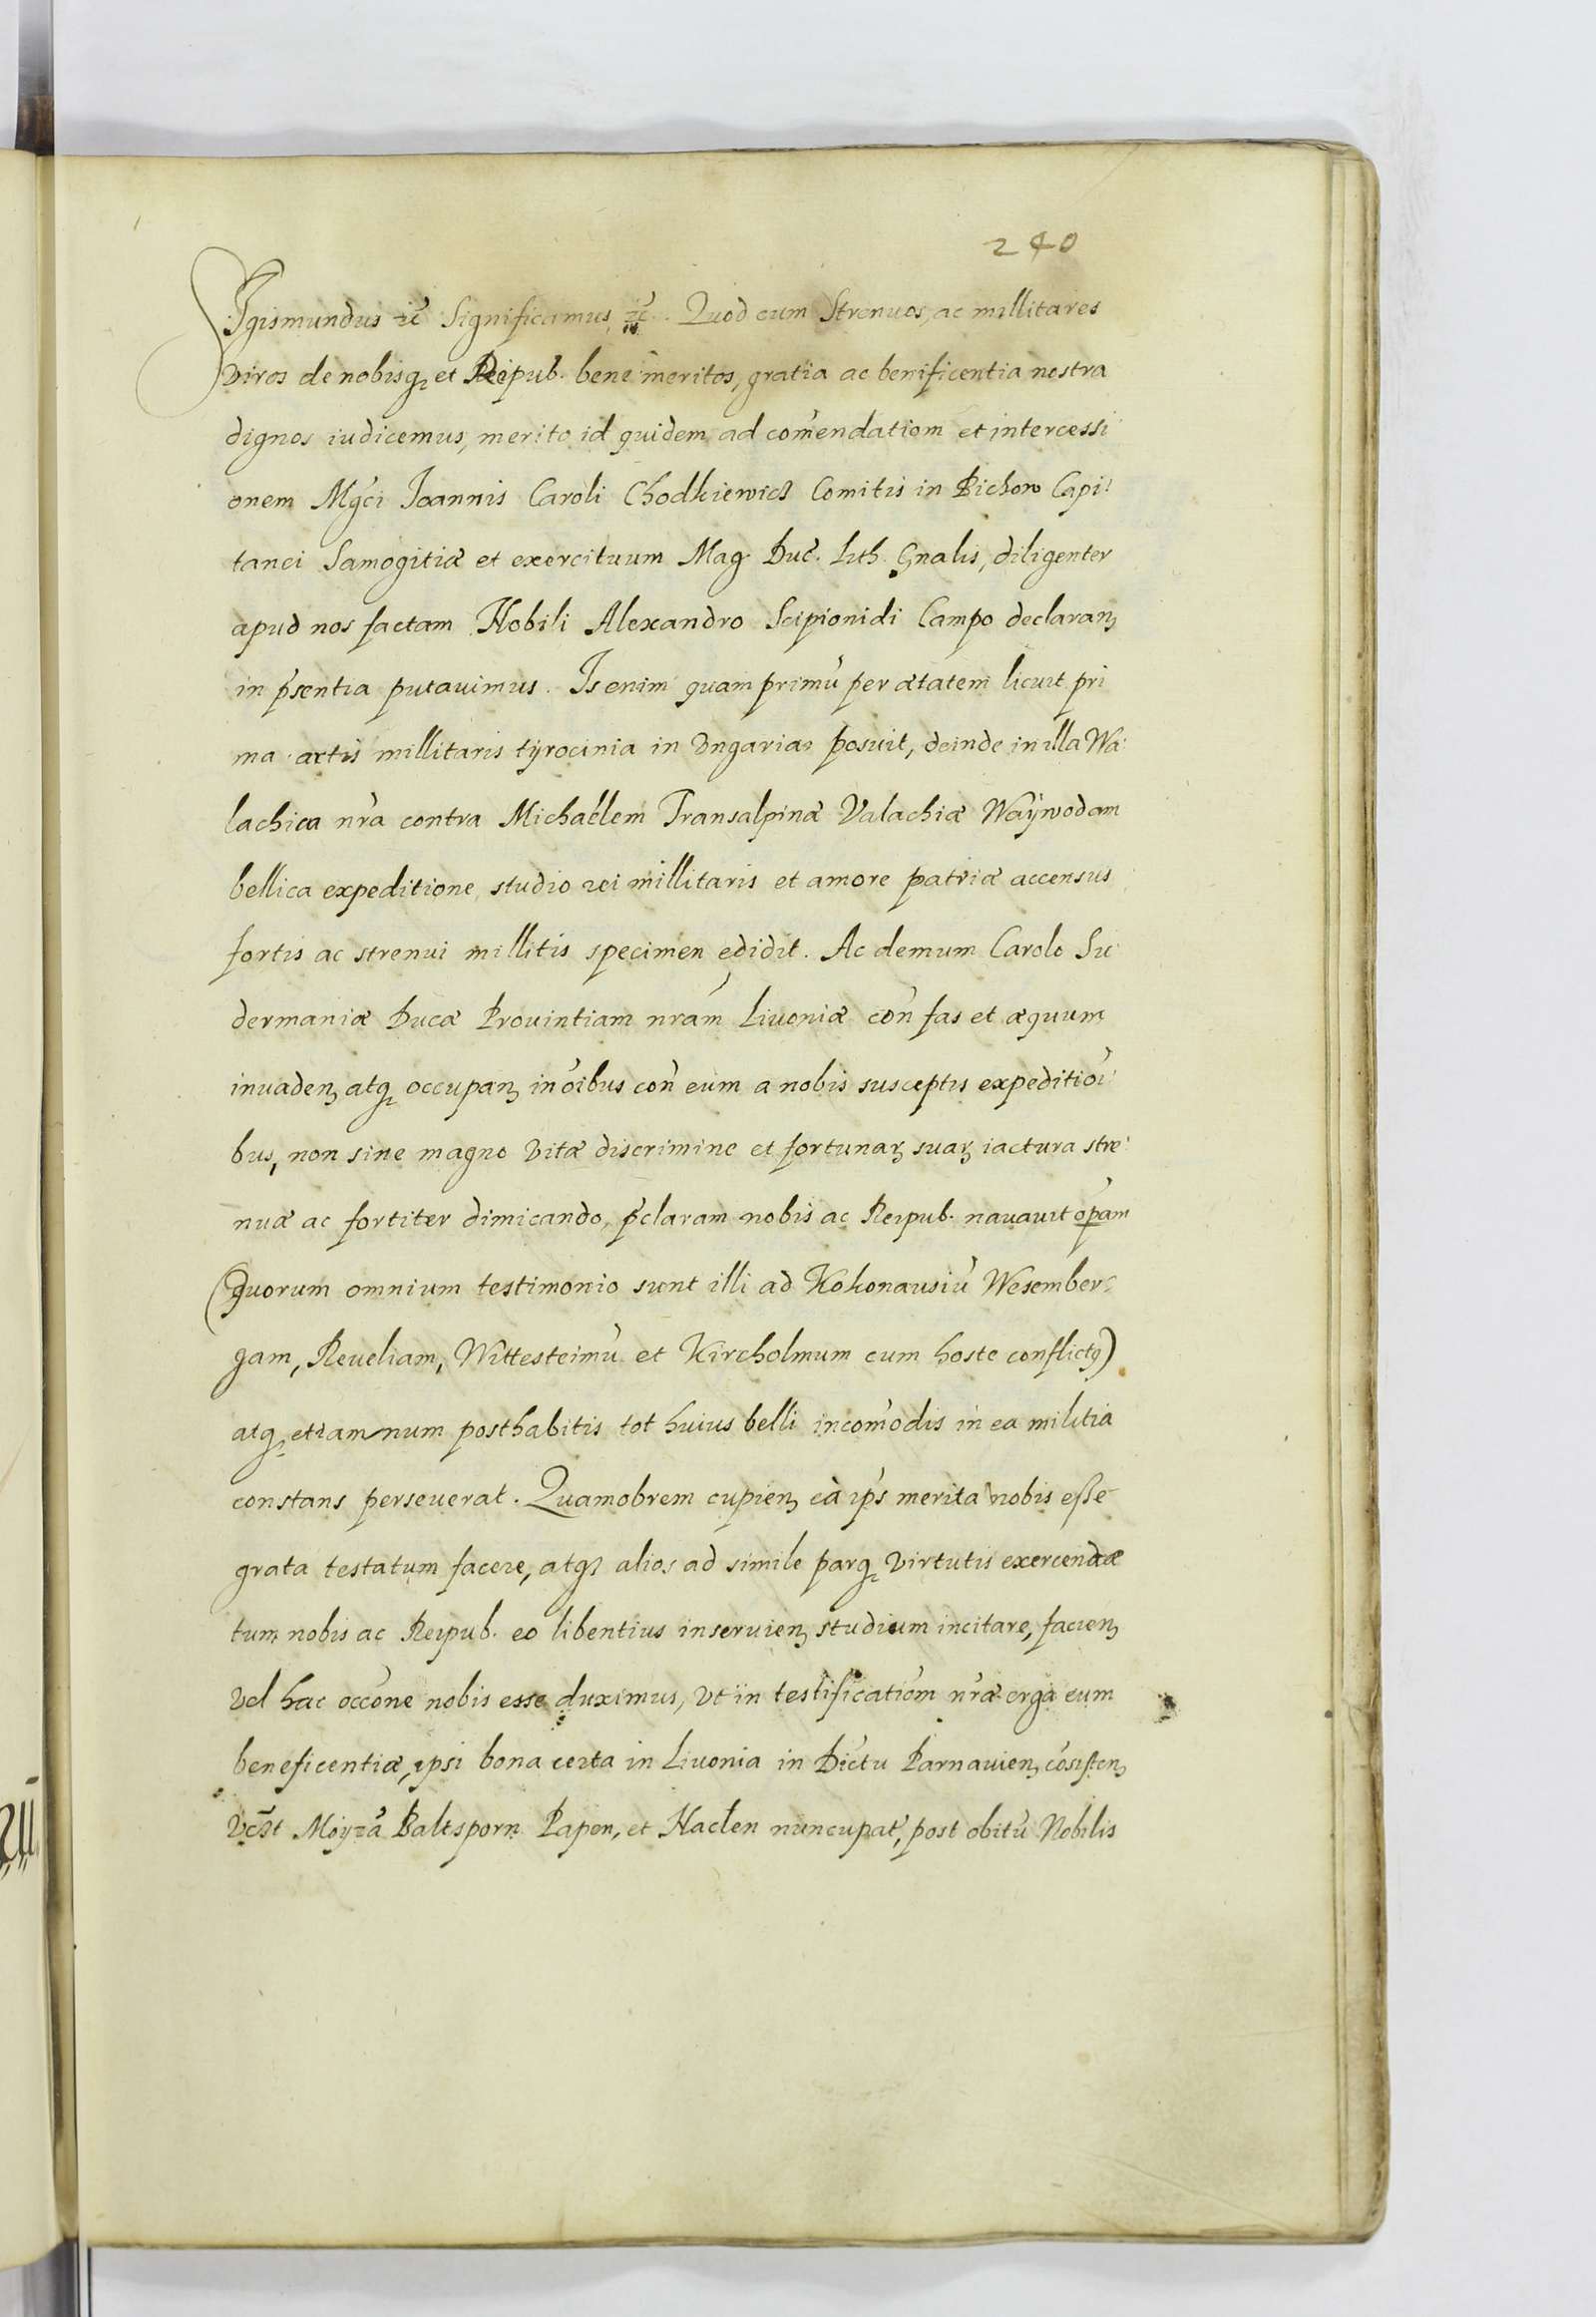 240
Sigismundus ꝛc̃ Significamus ꝛc̃. Quod cum Strenuos ac millitares
viros de nobisqꝫ et Reipub. bene meritos, gratia ac benificentia nostra
dignos iudicemus, merito id quidem ad com̃endatiom̃ et intercessi
onem Mg̃ci Ioannis Caroli Chodkiewicz Comitis in Bichow Capi:
tanei Samogitiæ et exercituum Mag. Duc̃. Lith. Gñalis, diligenter
apud nos factam Nobili Alexandro Scipionidi Campo declaranꝫ
in p̃sentia putauimus. Is enim quam primũ per ætatem licuit pri
ma artis millitaris tÿrocinia in Vngaria posuit, deinde in illa Wa:
lachica nr̃a contra Michaëlem Transalpinæ Valachiæ Waÿwodam
bellica expeditione, studio rei millitaris et amore patriæ accensus
fortis ac strenui millitis specimen edidit. Ac demum Carolo Su
dermaniæ Ducæ Prouintiam nr̃am Liuoniæ coñ fas et æquum
inuadenꝫ atqꝫ occupanꝫ in oĩbus coñ eum a nobis susceptis expeditioĩ
bus, non sine magno vitæ discrimine et fortunaꝝ suaꝝ iactura stre:
nuæ ac fortiter dimicando, p̃claram nobis ac Reipub. nauauit op̃am
(Quorum omnium testimonio sunt illi ad Kokonausiũ Wesember:
gam, Reueliam, Wittesteimũ et Kircholmum cum hoste conflictꝰ)
atqꝫ etiam num posthabitis tot huius belli incom̃odis in ea militia
constans perseuerat. Quamobrem cupienꝫ eà ip̃s merita nobis esse
grata testatum facere, atqꝫ alios ad simile parqꝫ virtutis exercendæ
tum nobis ac Reipub. eo libentius inseruienꝫ studium incitare, facienꝫ
vel hac occõne nobis esse duximus, vt in testificatiom̃ nr̃æ erga eum
beneficentiæ, ipsi bona certa in Liuonia in Dictu Parnauienꝫ cõsistenꝫ
vc̃st Moÿzã Baltsporn Papen, et Haclen nuncupat̃, post obitũ Nobilis